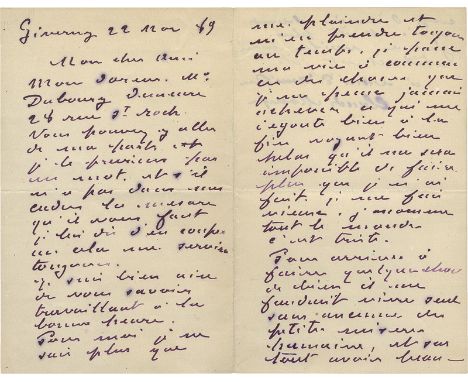 Giverny 22 Nov 89
Mon cher ami
Mon doreur M.
Dubourg demeure
28 rue St Roch.
Vous pouvez y aller
de ma part et
je le previens par
un mot, et s'il
n'a pas dans mes
cadres la mesure
qu'il vous faut
je lui dis d'en
cela me servira
toujours.
Je suis bien aise
de vous savoir
travaillant à la
bonne heure.
Pour moi je ne
sais plus que
me plaindre et
m'en prendre toujours
au temps, je passe
ma vie à commencer
des choses que
je ne peux jamais
achever, ce qui me
dégoute bien à la
fin voyant bien
qu'il me sera
impossible de faire
plus que je n'ai
fait, je me fais
vieux, j'
tout le monde
c'est triste.
Pour arriver à
faire quelque chose
de bien il me
faudrait vivre seul
sans aucune des
petites misères
humaines, et par
tout avoir beau-